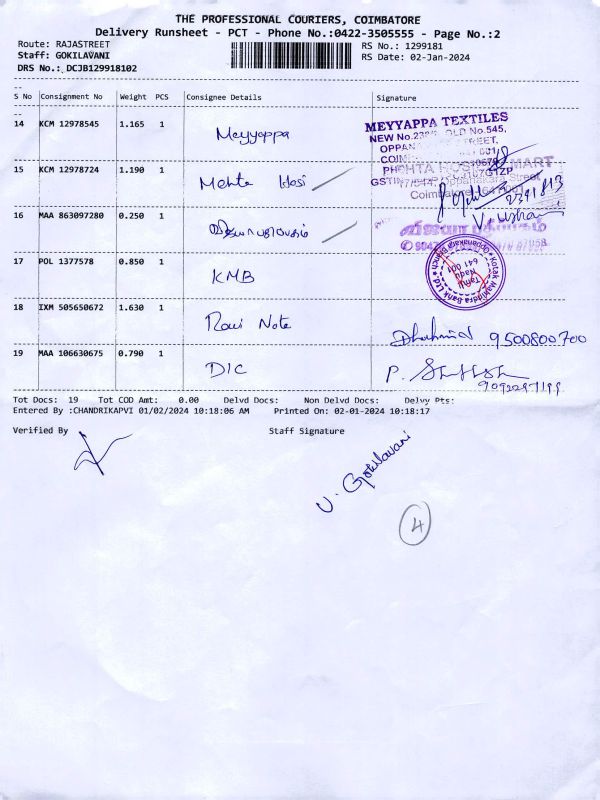 THE PROFESSIONAL COURIERS, COIMBATORE
Delivery Runsheet - PCT - Phone No.:0422-3505555 - Page No.:2
Route: RAJASTREET RS No.: 1299181
Staff: GOKILAVANI RS Date: 02-Jan-2024
DRS No.: DCJB129918102
S No Consignment No Weight PCS Consignee Details Signature
14 KCM 12978545 1.165 1 Meyyappa
MEYYAPPA TEXTILES
15 KCM 12978724 1.190 1 Mehta Hosi
Coimbatore
16 MAA 863097280 0.250 1
17 POL 1377578 0.850 1 KMB
Kotak Mahindra Bank Ltd
Oppanakara Branch
Tamil Nadu
641 001
18 IXM 505650672 1.630 1 Ravi Note 9500800700
19 MAA 106630675 0.790 1 DIC P.
Tot Docs: 19 Tot COD Amt: 0.00 Delvd Docs: Non Delvd Docs: Delvy Pts:
Entered By :CHANDRIKAPVI 01/02/2024 10:18:06 AM Printed On: 02-01-2024 10:18:17
Verified By Staff Signature
V. Gokilavani
4